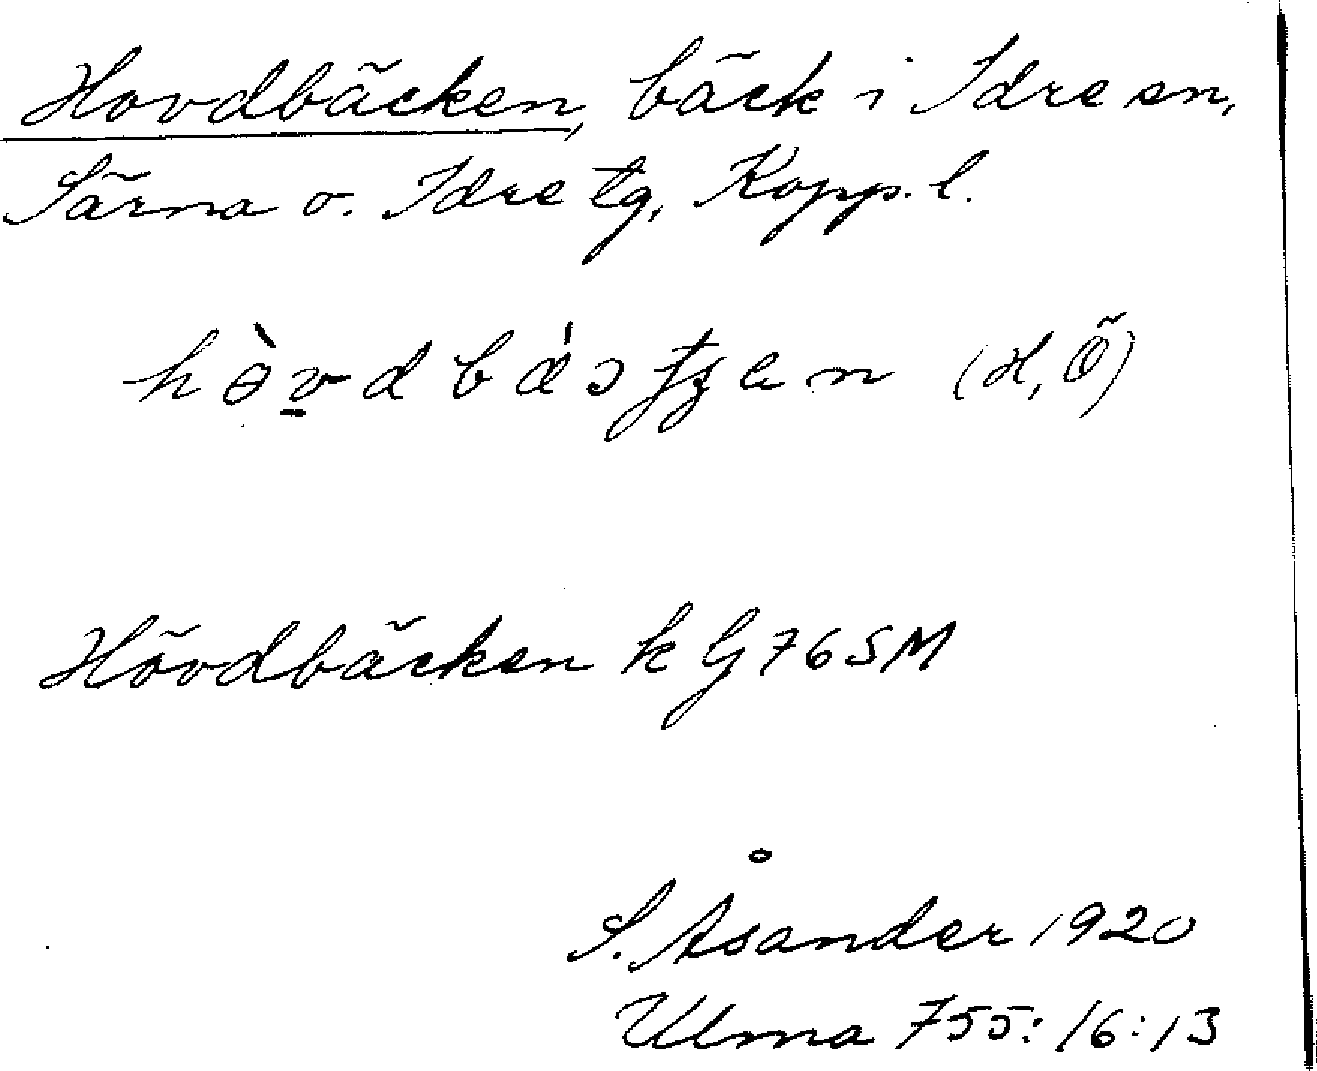 Hovdbäcken, bäck i Idre sn,
Särna o. Idre tg, Kopp. l.
(H, Ö)
Hövdbäcken k G 76 SM
S. Åsander 1920
Ulma 755: 16:13